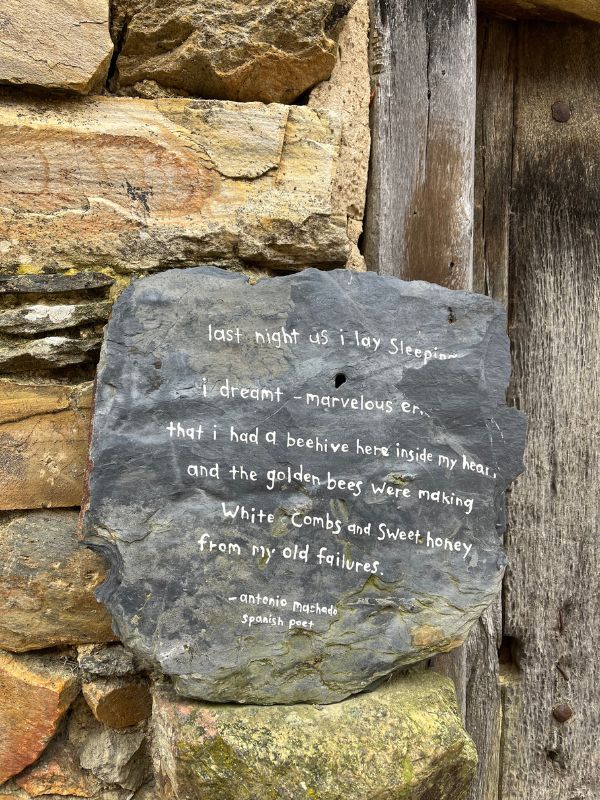 last night as i lay sleepin
i dreamt - marvelous er..
that i had a beehive here inside my hear
and the golden bees were making
White Combs and Sweet honey
from my old failures.
- antonio machado
spanish poet